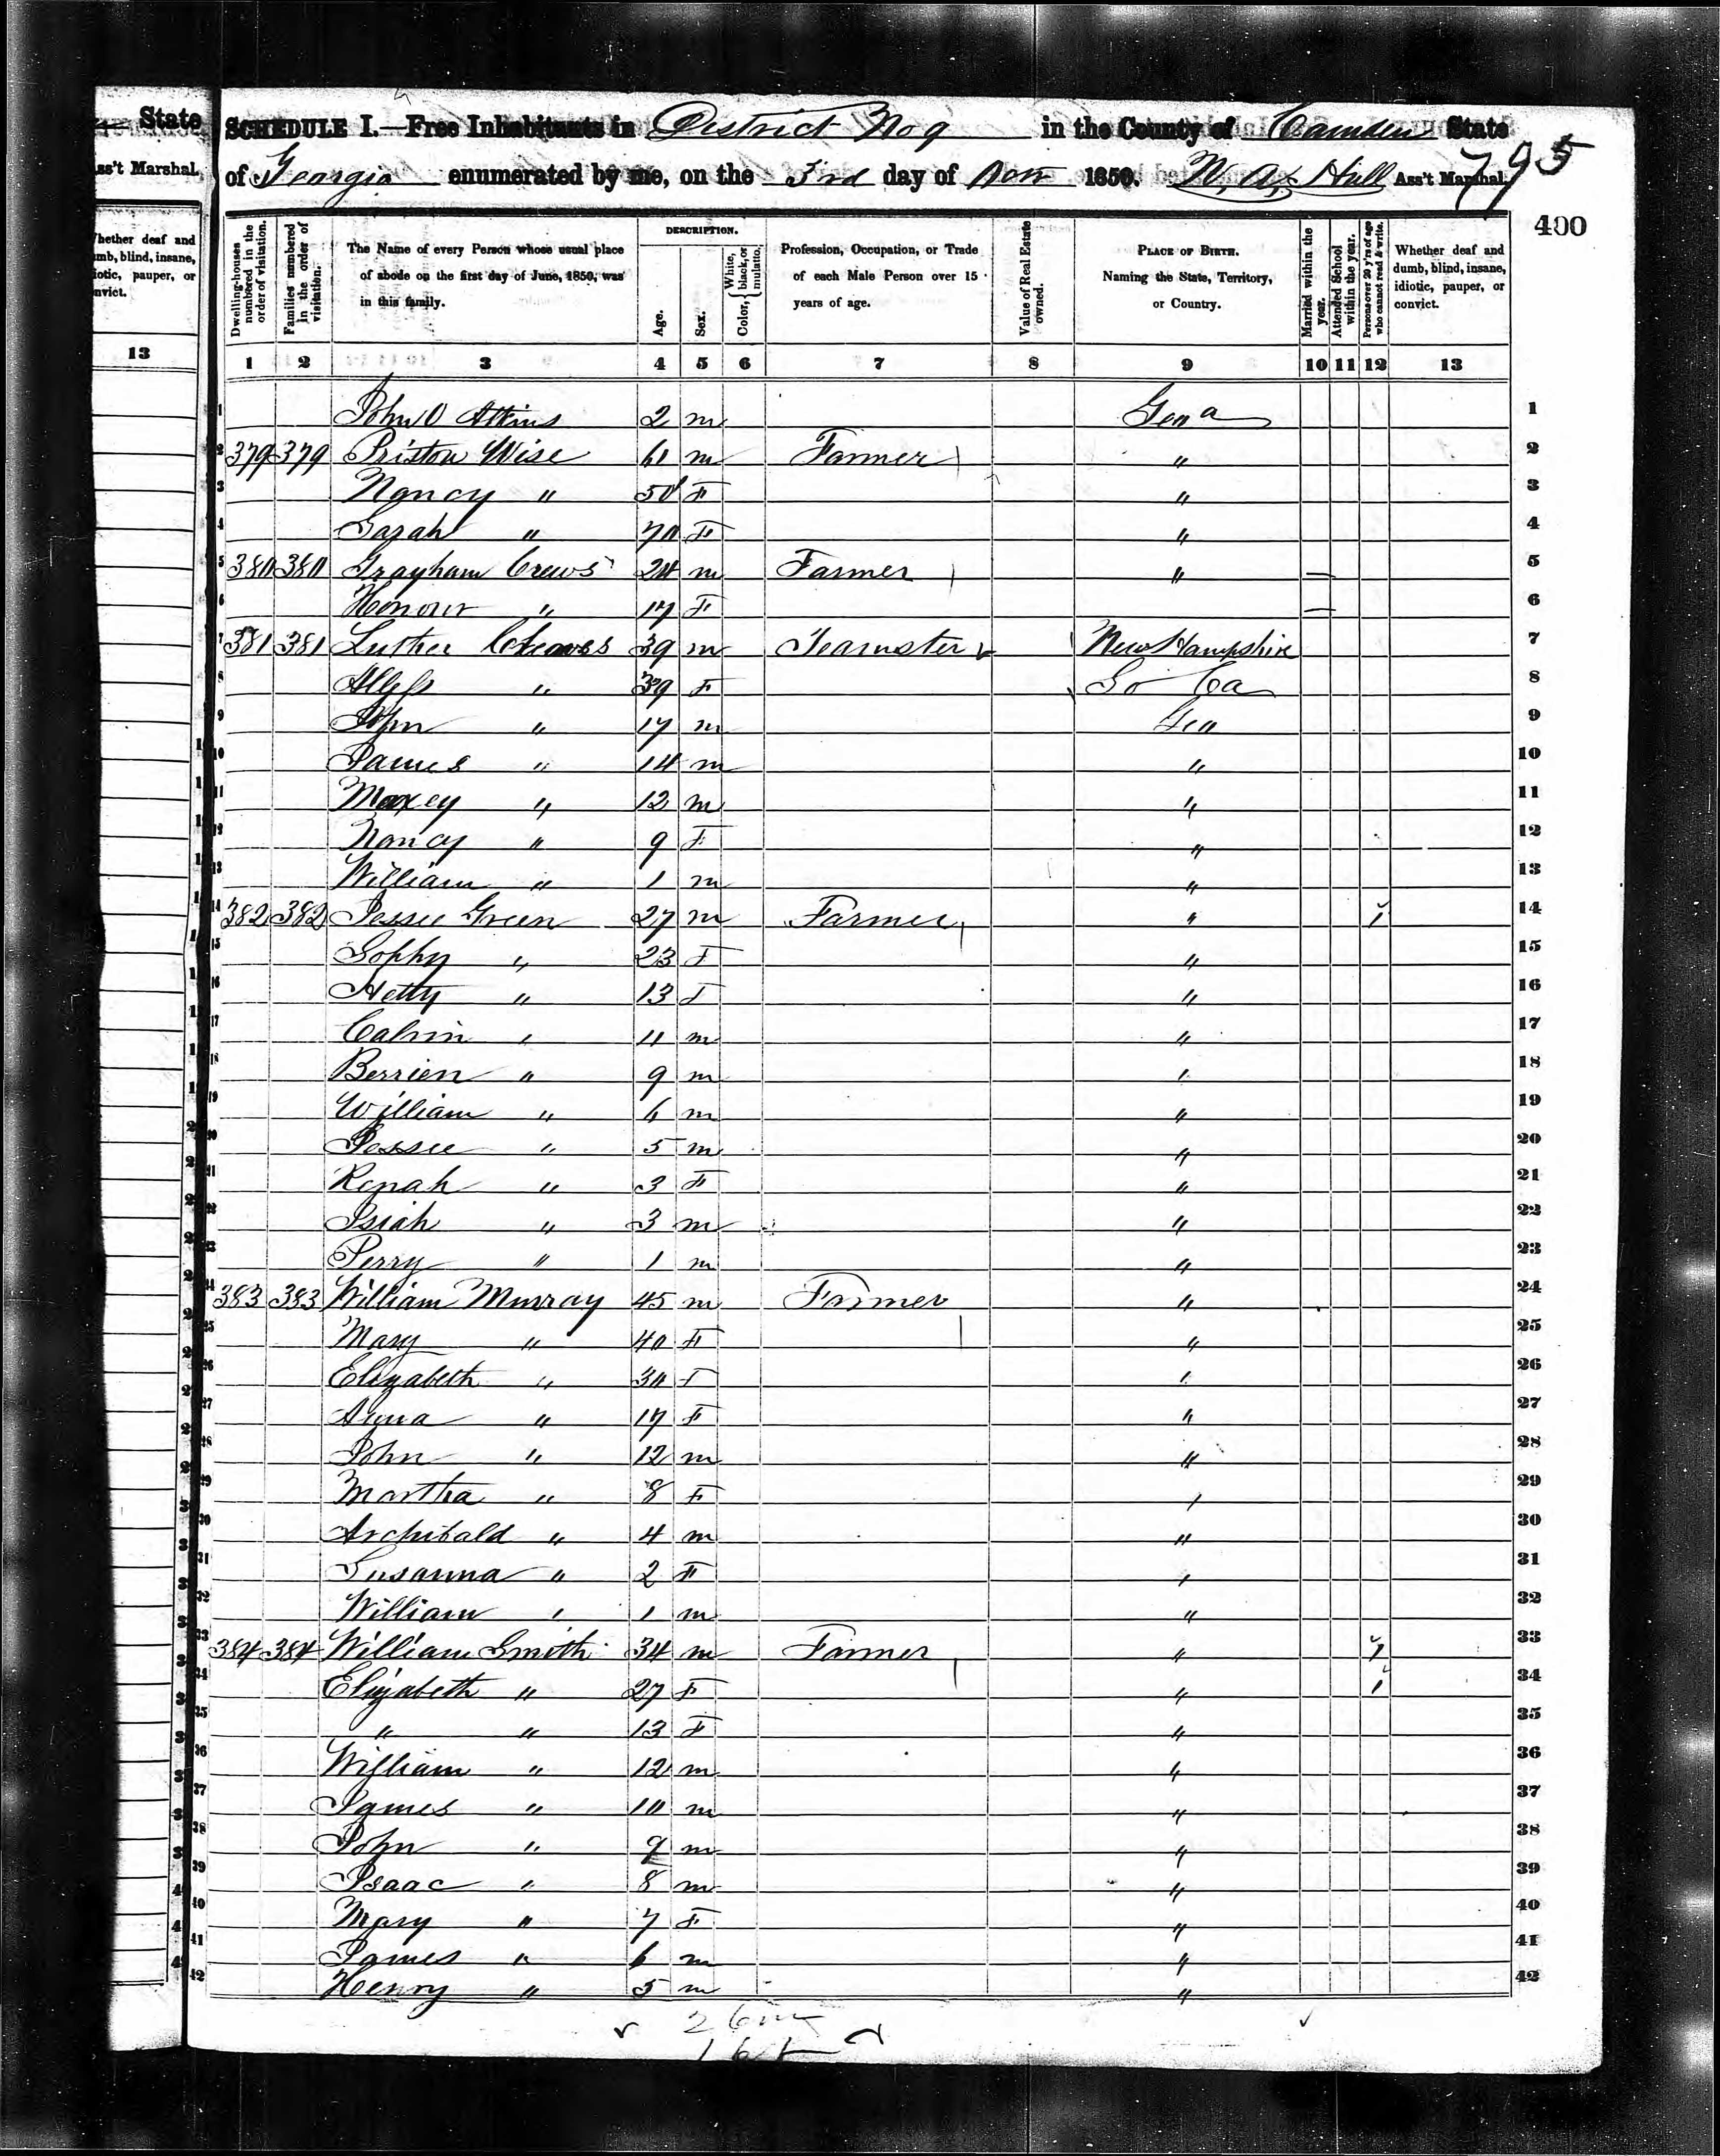 State
Ass't Marshal.
Whether deaf and
dumb, blind, insane,
idiotic, pauper, or
convict.
13
SCHEDULE I.—Free Inhabitants in District No 9 in the County of Camden State
of Georgia enumerated by me, on the 3rd day of Nov 1850. W. A. Hull Ass't Marshal.
795
400
Dwelling-houses numbered in the order of visitation.
Families numbered in the order of visitation.
The Name of every Person whose usual place of abode on the first day of June, 1850, was in this family.
DESCRIPTION.
Age.
Sex.
Color, { White, black, or mulatto.
Profession, Occupation, or Trade of each Male Person over 15 years of age.
Value of Real Estate owned.
PLACE OF BIRTH. Naming the State, Territory, or Country.
Married within the year.
Attended School within the year.
Persons over 20 y'rs of age who cannot read & write.
Whether deaf and dumb, blind, insane, idiotic, pauper, or convict.
1 2 3 4 5 6 7 8 9 10 11 12 13
1 John O Atkins 2 m Geoa 1
2 379 379 Priston Wise 61 m Farmer " 2
3 Nancy " 50 F " 3
4 Sarah " 70 F " 4
5 380 380 Grayham Crews 24 m Farmer " — 5
6 Honour " 17 F — 6
7 381 381 Luther Cleaves 39 m Teamster New Hampshire 7
8 " 39 F So Ca 8
9 John " 17 m Geo 9
10 James " 14 m " 10
11 Maxey " 12 m " 11
12 Nancy " 9 F " 12
13 William " 1 m " 13
14 382 382 Jessee Green 27 m Farmer " 1 14
15 Sophy " 23 F " 15
16 Hetty " 13 F " 16
17 Calvin " 11 m " 17
18 Berrien " 9 m " 18
19 William " 6 m " 19
20 Jessee " 5 m " 20
21 Renah " 3 F " 21
22 Isiah " 3 m " 22
23 Perry " 1 m " 23
24 383 383 William Murray 45 m Farmer " 24
25 Mary " 40 F " 25
26 Elizabeth " 30 F " 26
27 Anna " 17 F " 27
28 John " 12 m " 28
29 Martha " 8 F " 29
30 Archibald " 4 m " 30
31 Susanna " 2 F " 31
32 William " 1 m " 32
33 384 384 William Smith 34 m Farmer " 1 33
34 Elizabeth " 27 F " 1 34
35 " " 13 F " 35
36 William " 12 m " 36
37 James " 10 m " 37
38 John " 9 m " 38
39 Isaac " 8 m " 39
40 Mary " 7 F " 40
41 James " 6 m " 41
42 Henry " 5 m " 42
26 m
16 f